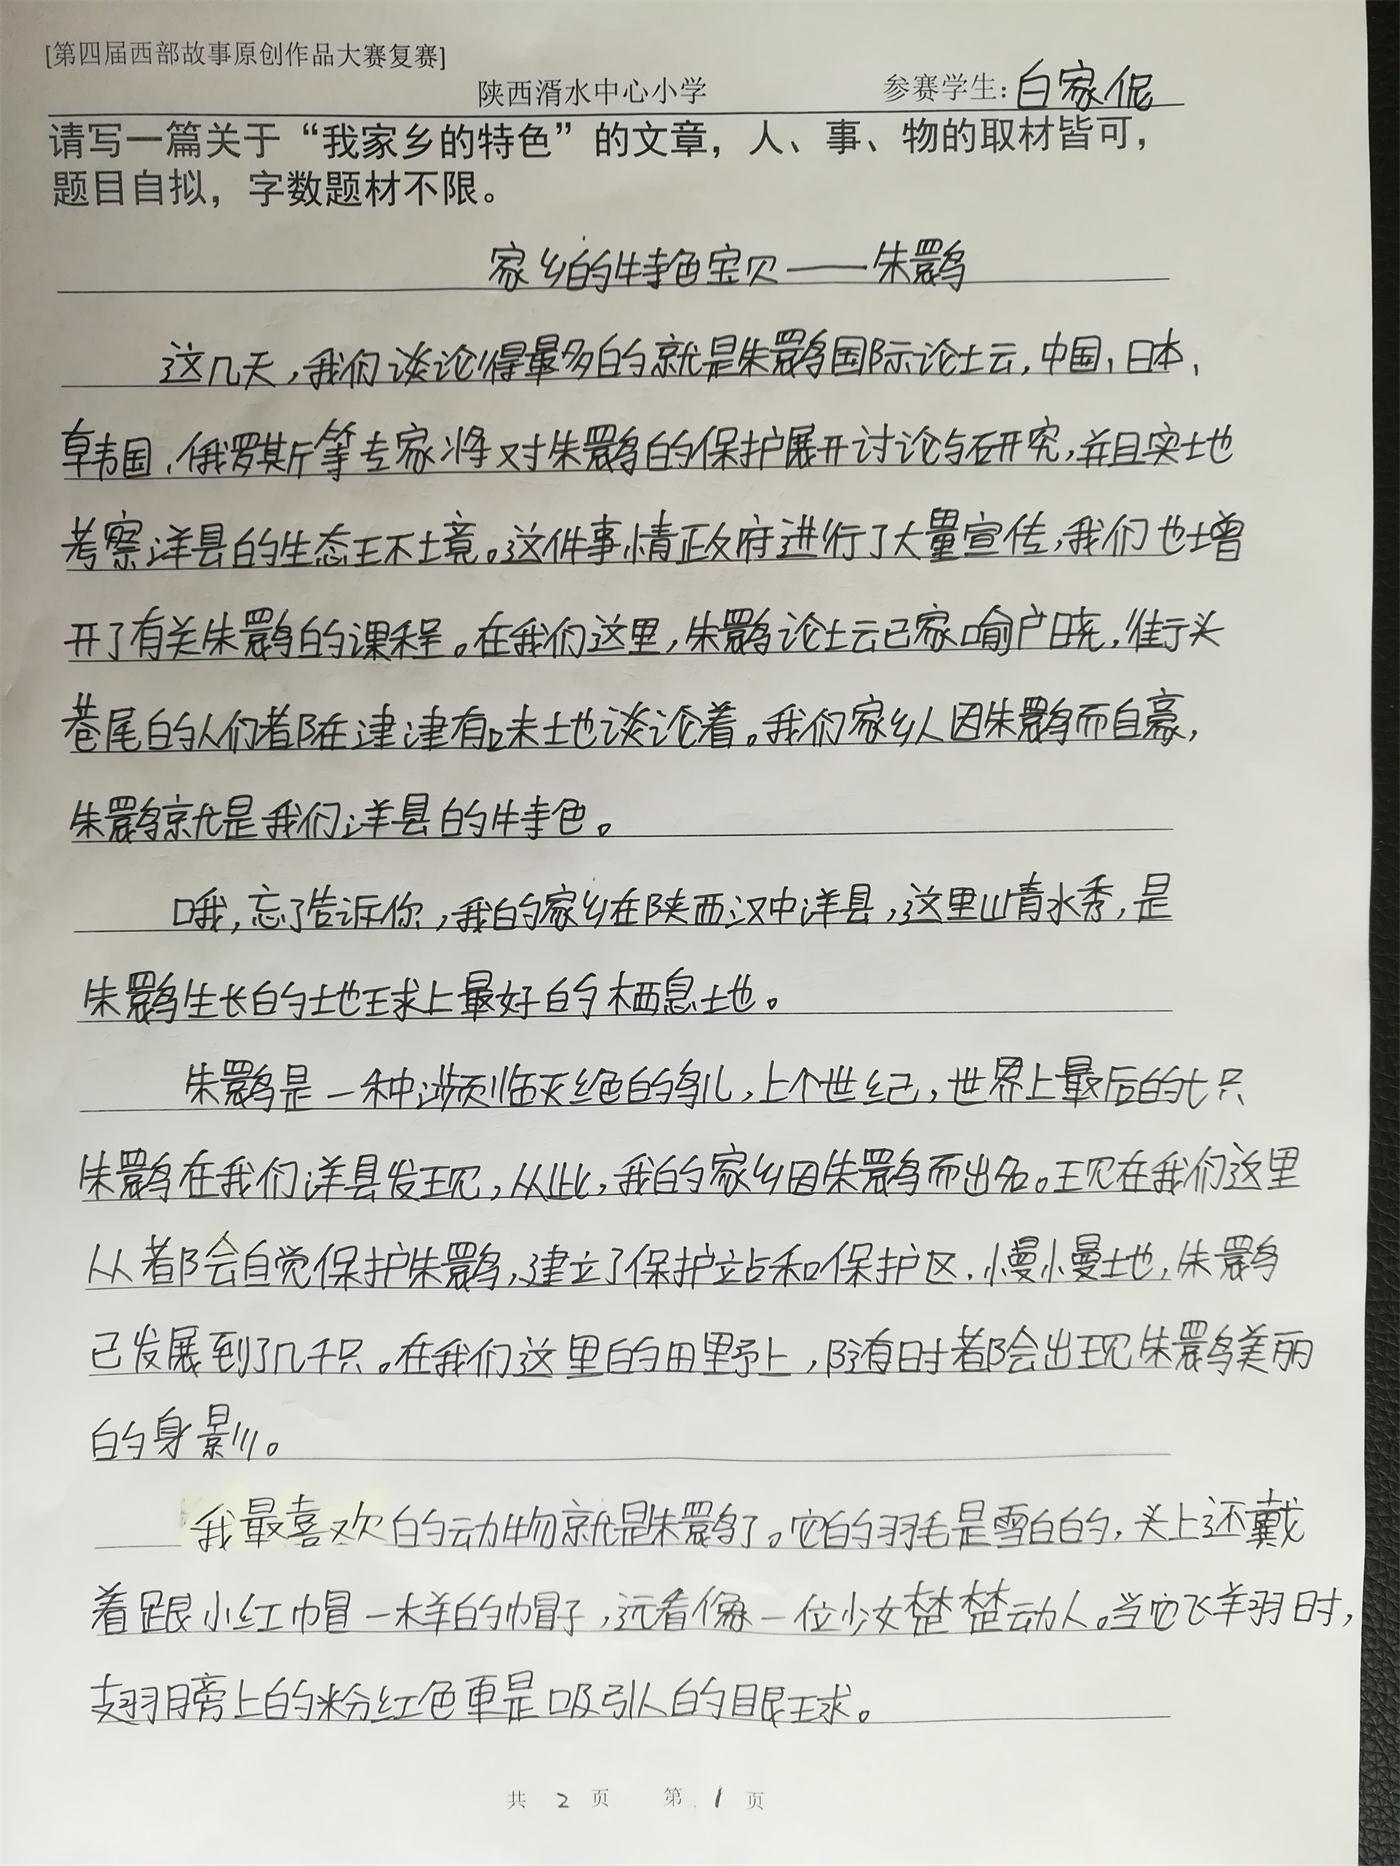 [第四届西部故事原创作品大赛复赛]
陕西湑水中心小学 参赛学生：白家伲
请写一篇关于“我家乡的特色”的文章，人、事、物的取材皆可，
题目自拟，字数题材不限。
家乡的特色宝贝——朱鹮
这几天，我们谈论得最多的就是朱鹮国际论坛，中国，日本，
韩国，俄罗斯等专家将对朱鹮的保护展开讨论与研究，并且实地
考察洋县的生态环境。这件事情政府进行了大量宣传，我们也增
开了有关朱鹮的课程。在我们这里，朱鹮论坛已家喻户晓，街头
巷尾的人们都在津津有味地谈论着。我们家乡人因朱鹮而自豪，
朱鹮就是我们洋县的特色。
哦，忘了告诉你，我的家乡在陕西汉中洋县，这里山青水秀，是
朱鹮生长的地球上最好的栖息土地。
朱鹮是一种濒临灭绝的鸟儿，上个世纪，世界上最后的七只
朱鹮在我们洋县发现，从此，我的家乡因朱鹮而出名。现在我们这里
从都会自觉保护朱鹮，建立了保护站和保护区，慢慢地，朱鹮
已发展到了几千只。在我们这里的田野上，随时都会出现朱鹮美丽
的身影。
我最喜欢的动物就是朱鹮了。它的羽毛是雪白的，头上还戴
着跟小红帽一样的帽子，远看像一位少女楚楚动人。当它飞翔时，
翅膀上的粉红色更是吸引人的眼球。
共 2 页 第 1 页